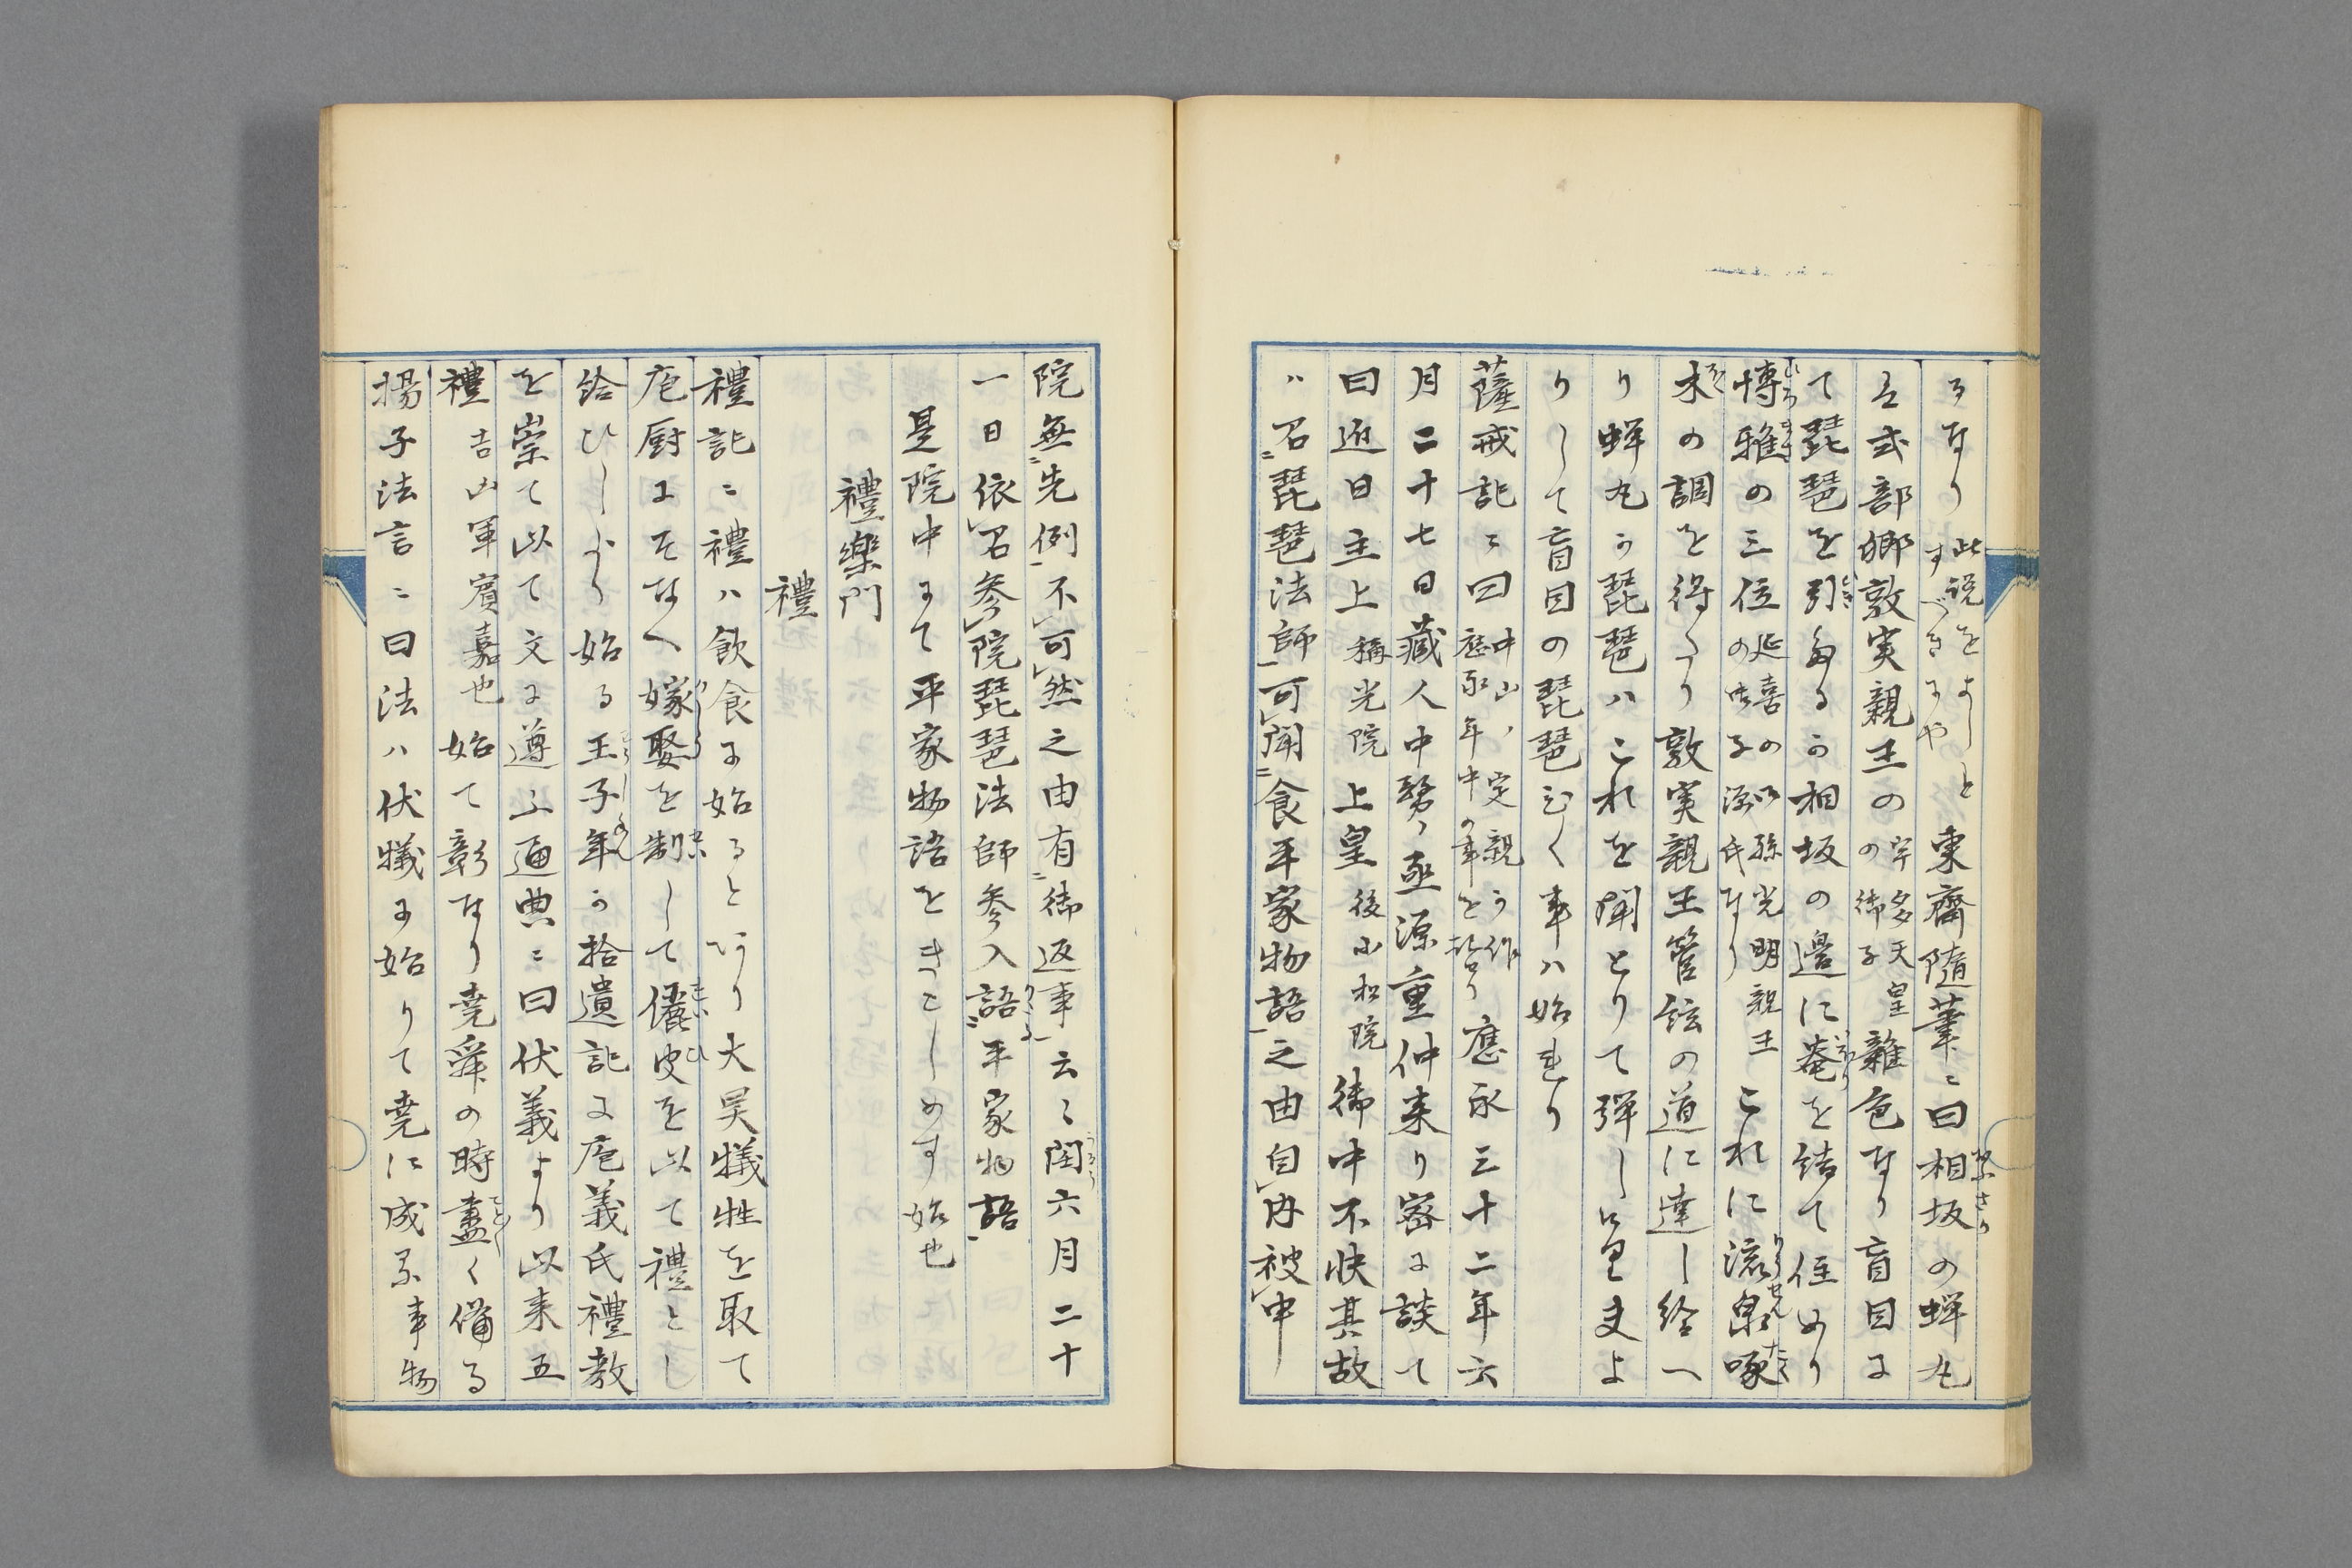 るなり 此説をよしとすべきにや 東齋隨筆ニ曰相坂の蝉丸
ハ式部卿敦実親王の 宇多天皇の御子 雑色なり盲目に
て琵琶を引けるか相坂の邊に菴を結て住めり
博雅の三位 延喜の御孫光明親王の御子源氏なり これに流泉啄
木の調を得たり敦実親王管絃の道に達し給へ
り蝉丸か琵琶ハこれを聞とりて弾し
りして盲目の琵琶ひく事ハ始まり
薩戒記ニ曰 中山ノ定親の作 應永年中の事を 應永三十二年六
月二十七日藏人中務丞源重仲来り密に談て
曰近日主上 稱光院 上皇 後小松院 御中不快其故
ハ召琵琶法師可聞食平家物語之由自内被申
院無先例不可然之由有御返事云々閏六月二十
一日依召参院琵琶法師参入語平家物語
是院中にて平家物語をきこしめす始也
禮樂門
禮
禮記ニ禮ハ飲食に始るといへり大昊犠牲を取て
庖厨にそなへ嫁娶を制して儷皮を以て禮とし
給ひしより始る王子年か拾遺記に庖義氏禮教
を崇て以て文に遵ふ通典ニ曰伏義より以来五
禮 吉凶軍賓嘉也 始て彰なり堯舜の時盡く備る
揚子法言ニ曰法ハ伏犠に始りて堯に成る事物